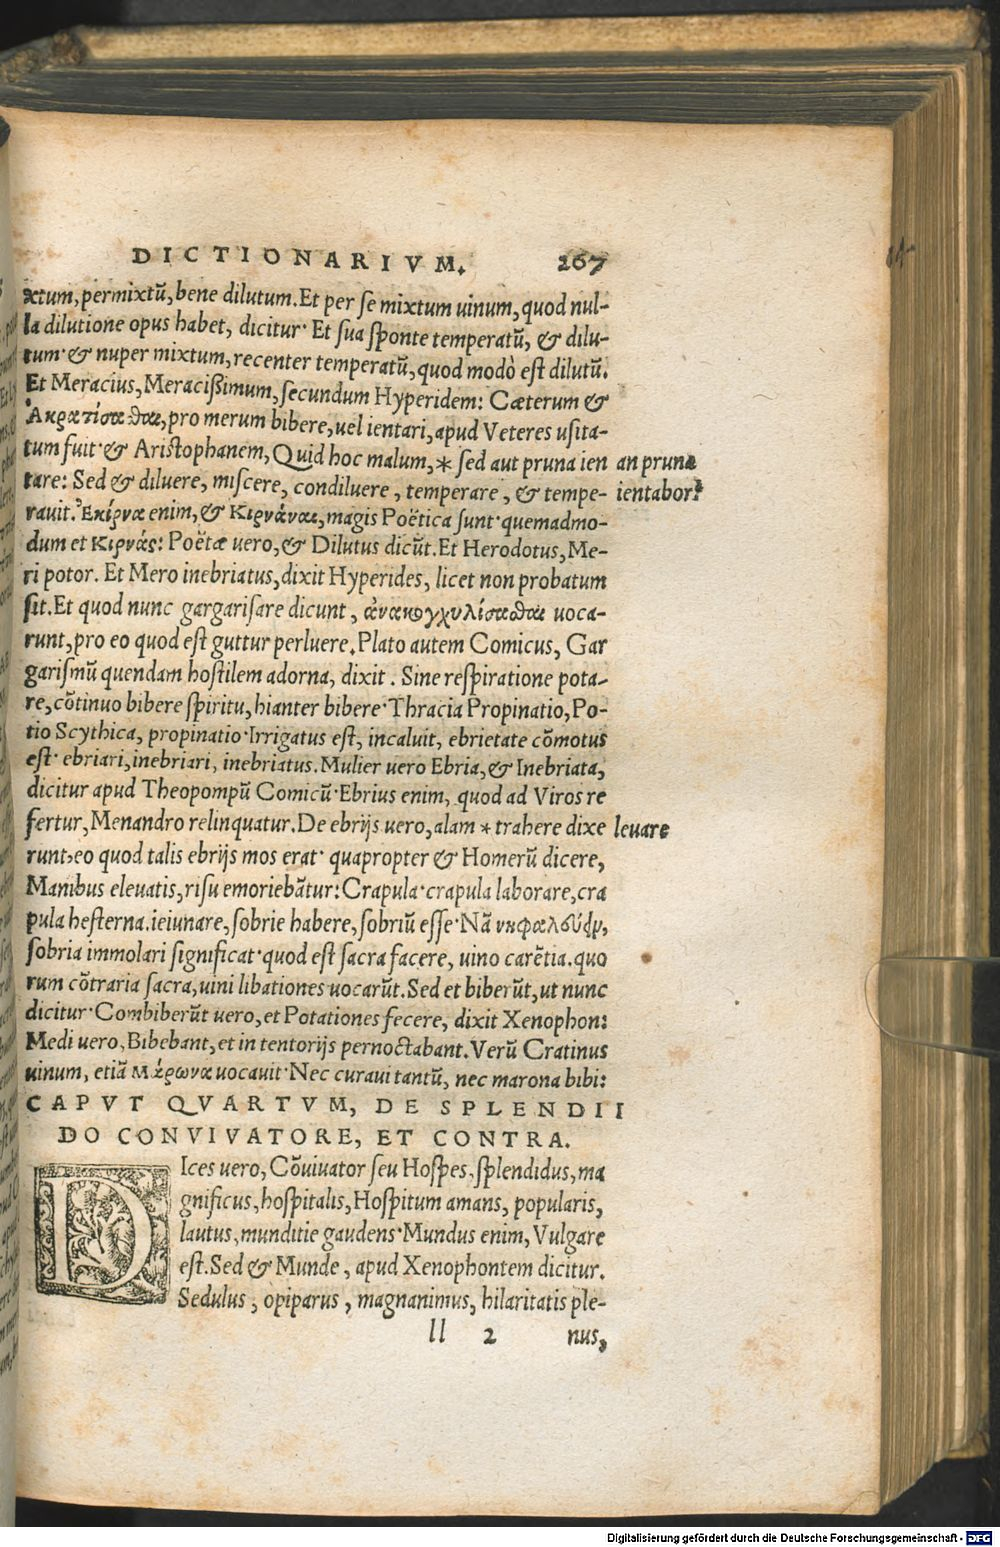 DICTIONARIVM. 267
xtum, permixtũ, bene dilutum. Et per se mixtum uinum, quod nul-
la dilutione opus habet, dicitur· Et sua sponte temperatũ, & dilu-
tum· & nuper mixtum, recenter temperatũ, quod modò est dilutũ.
Et Meracius, Meracißimum, secundum Hyperidem: Cæterum &
Ἀκρατίσαςθαι, pro merum bibere, uel ientari, apud Veteres usita-
tum fuit· & Aristophanem, Quid hoc malum, * sed aut pruna ien an pruna
tare: Sed & diluere, miscere, condiluere, temperare, & tempe- ientabor?
rauit. Ἐκίρνα enim, & Κιρνάναι, magis Poëtica sunt· quemadmo-
dum et Κιρνάς: Poëtæ uero, & Dilutus dicũt. Et Herodotus, Me-
ri potor. Et Mero inebriatus, dixit Hyperides, licet non probatum
sit. Et quod nunc gargarisare dicunt, ἀνακογχυλίσαςθαι uoca-
runt, pro eo quod est guttur perluere. Plato autem Comicus, Gar
garismũ quendam hostilem adorna, dixit. Sine respiratione pota-
re, cõtinuo bibere spiritu, hianter bibere· Thracia Propinatio, Po-
tio Scythica, propinatio· Irrigatus est, incaluit, ebrietate cõmotus
est· ebriari, inebriari, inebriatus. Mulier uero Ebria, & Inebriata,
dicitur apud Theopompũ Comicũ· Ebrius enim, quod ad Viros re
fertur, Menandro relinquatur. De ebrijs uero, alam * trahere dixe leuare
runt, eo quod talis ebrijs mos erat· quapropter & Homerũ dicere,
Manibus eleuatis, risu emoriebãtur: Crapula· crapula laborare, cra
pula hesterna. ieiunare, sobrie habere, sobriũ esse· Nã νηφαλεύειν,
sobria immolari significat· quod est sacra facere, uino carẽtia. quo
rum cõtraria sacra, uini libationes uocarũt. Sed et biberũt, ut nunc
dicitur· Combiberũt uero, et Potationes fecere, dixit Xenophon:
Medi uero, Bibebant, et in tentorijs pernoctabant. Verũ Cratinus
uinum, etiã Μάρωνα uocauit· Nec curaui tantũ, nec marona bibi:
CAPVT QVARTVM, DE SPLENDII
DO CONVIVATORE, ET CONTRA.
DIces uero, Cõuiuator seu Hospes, splendidus, ma
gnificus, hospitalis, Hospitum amans, popularis,
lautus, munditie gaudens· Mundus enim, Vulgare
est. Sed & Munde, apud Xenophontem dicitur.
Sedulus, opiparus, magnanimus, hilaritatis ple-
ll 2 nus,
Digitalisierung gefördert durch die Deutsche Forschungsgemeinschaft - DFG